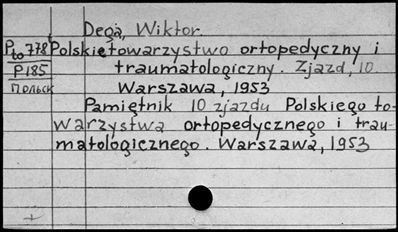 Dega, Wiktor.
P 778 Polskie towarzystwo ortopedyczny i
to
P185 traumatologiczny. Zjazd, 10.
Польск Warszawa, 1953
Pamiętnik 10 zjazdu Polskiego to-
warzystwa ortopedycznego i trau-
matologicznego. Warszawa, 1953